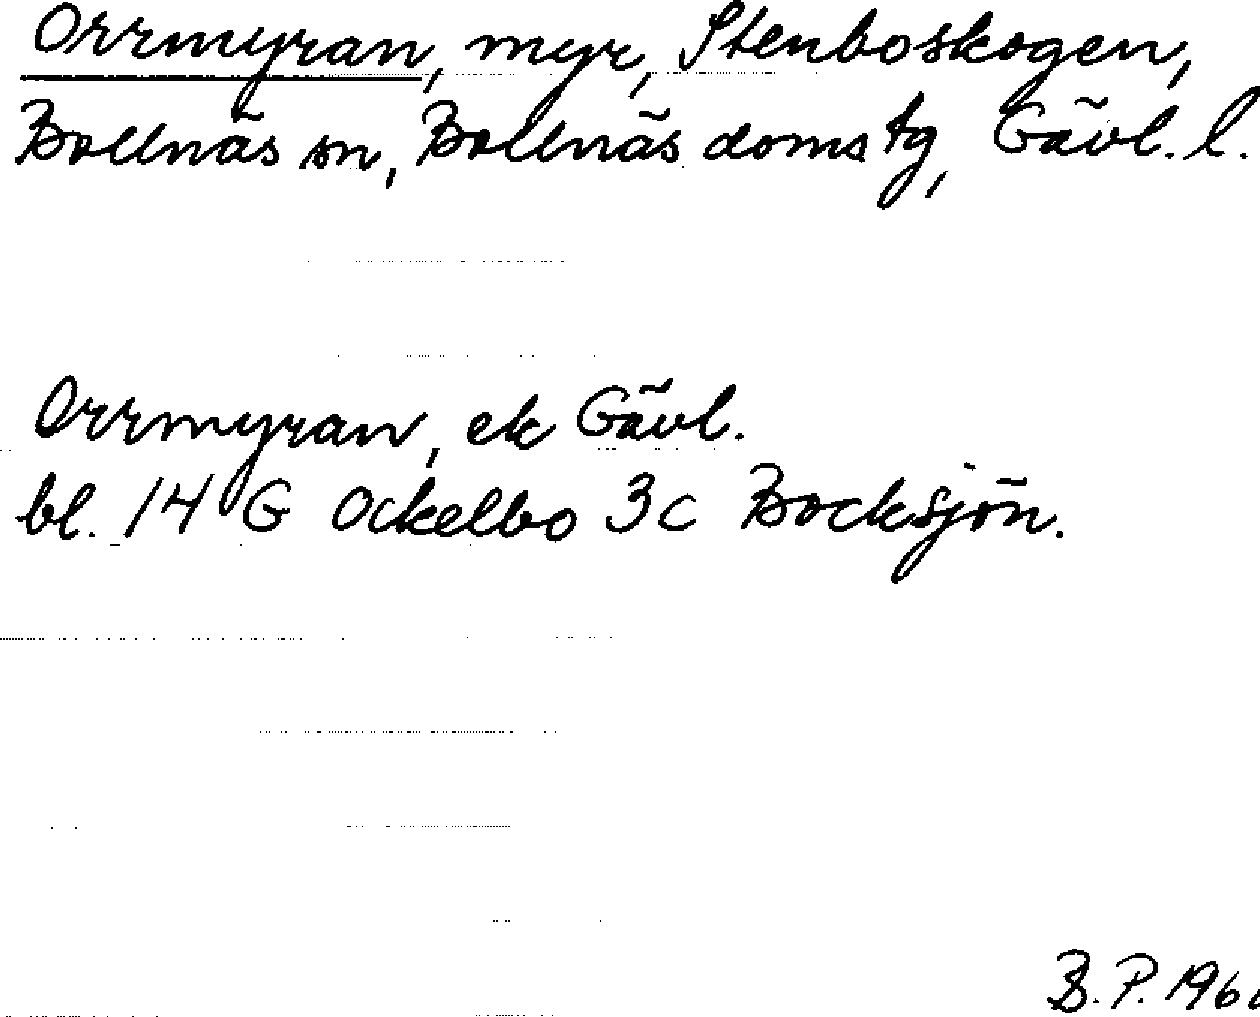 Orrmyran, myr, Stenboskogen,
Bollnäs sn, Bollnäs domstg, Gävl. l.
Orrmyran, ek Gävl.
bl. 14 G Ockelbo 3c Bocksjön.
B.P.